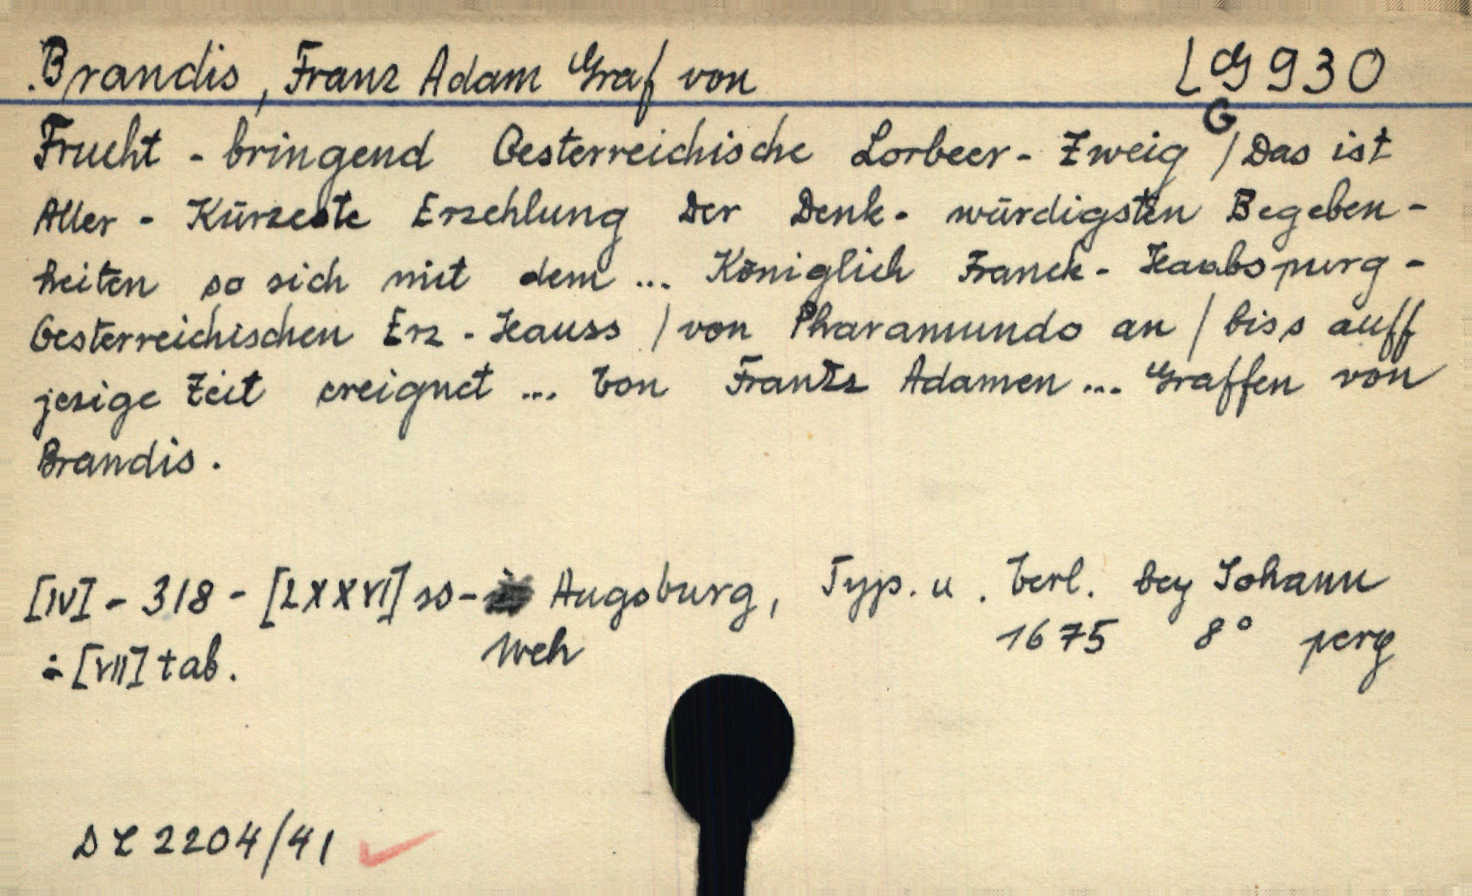 Brandis, Franz Adam Graf von LG 930
G
Frucht - bringend Oesterreichische Lorbeer - Zweig / Das ist
Aller - Kürzeste Erzehlung Der Denk - würdigsten Begeben -
heiten so sich mit dem ... Königlich Franck - Haabspurg -
Oesterreichischen Erz - Hauss / von Pharamundo an / biss auff
jezige Zeit ereignet ... Von Frantz Adamen ... Graffen von
Brandis.
[IV] - 318 - [LXXVI] ss - Augsburg, Typ. u. Verl. bey Johann
÷ [VII] tab. Weh 1675 8° perg
DL 2204/41